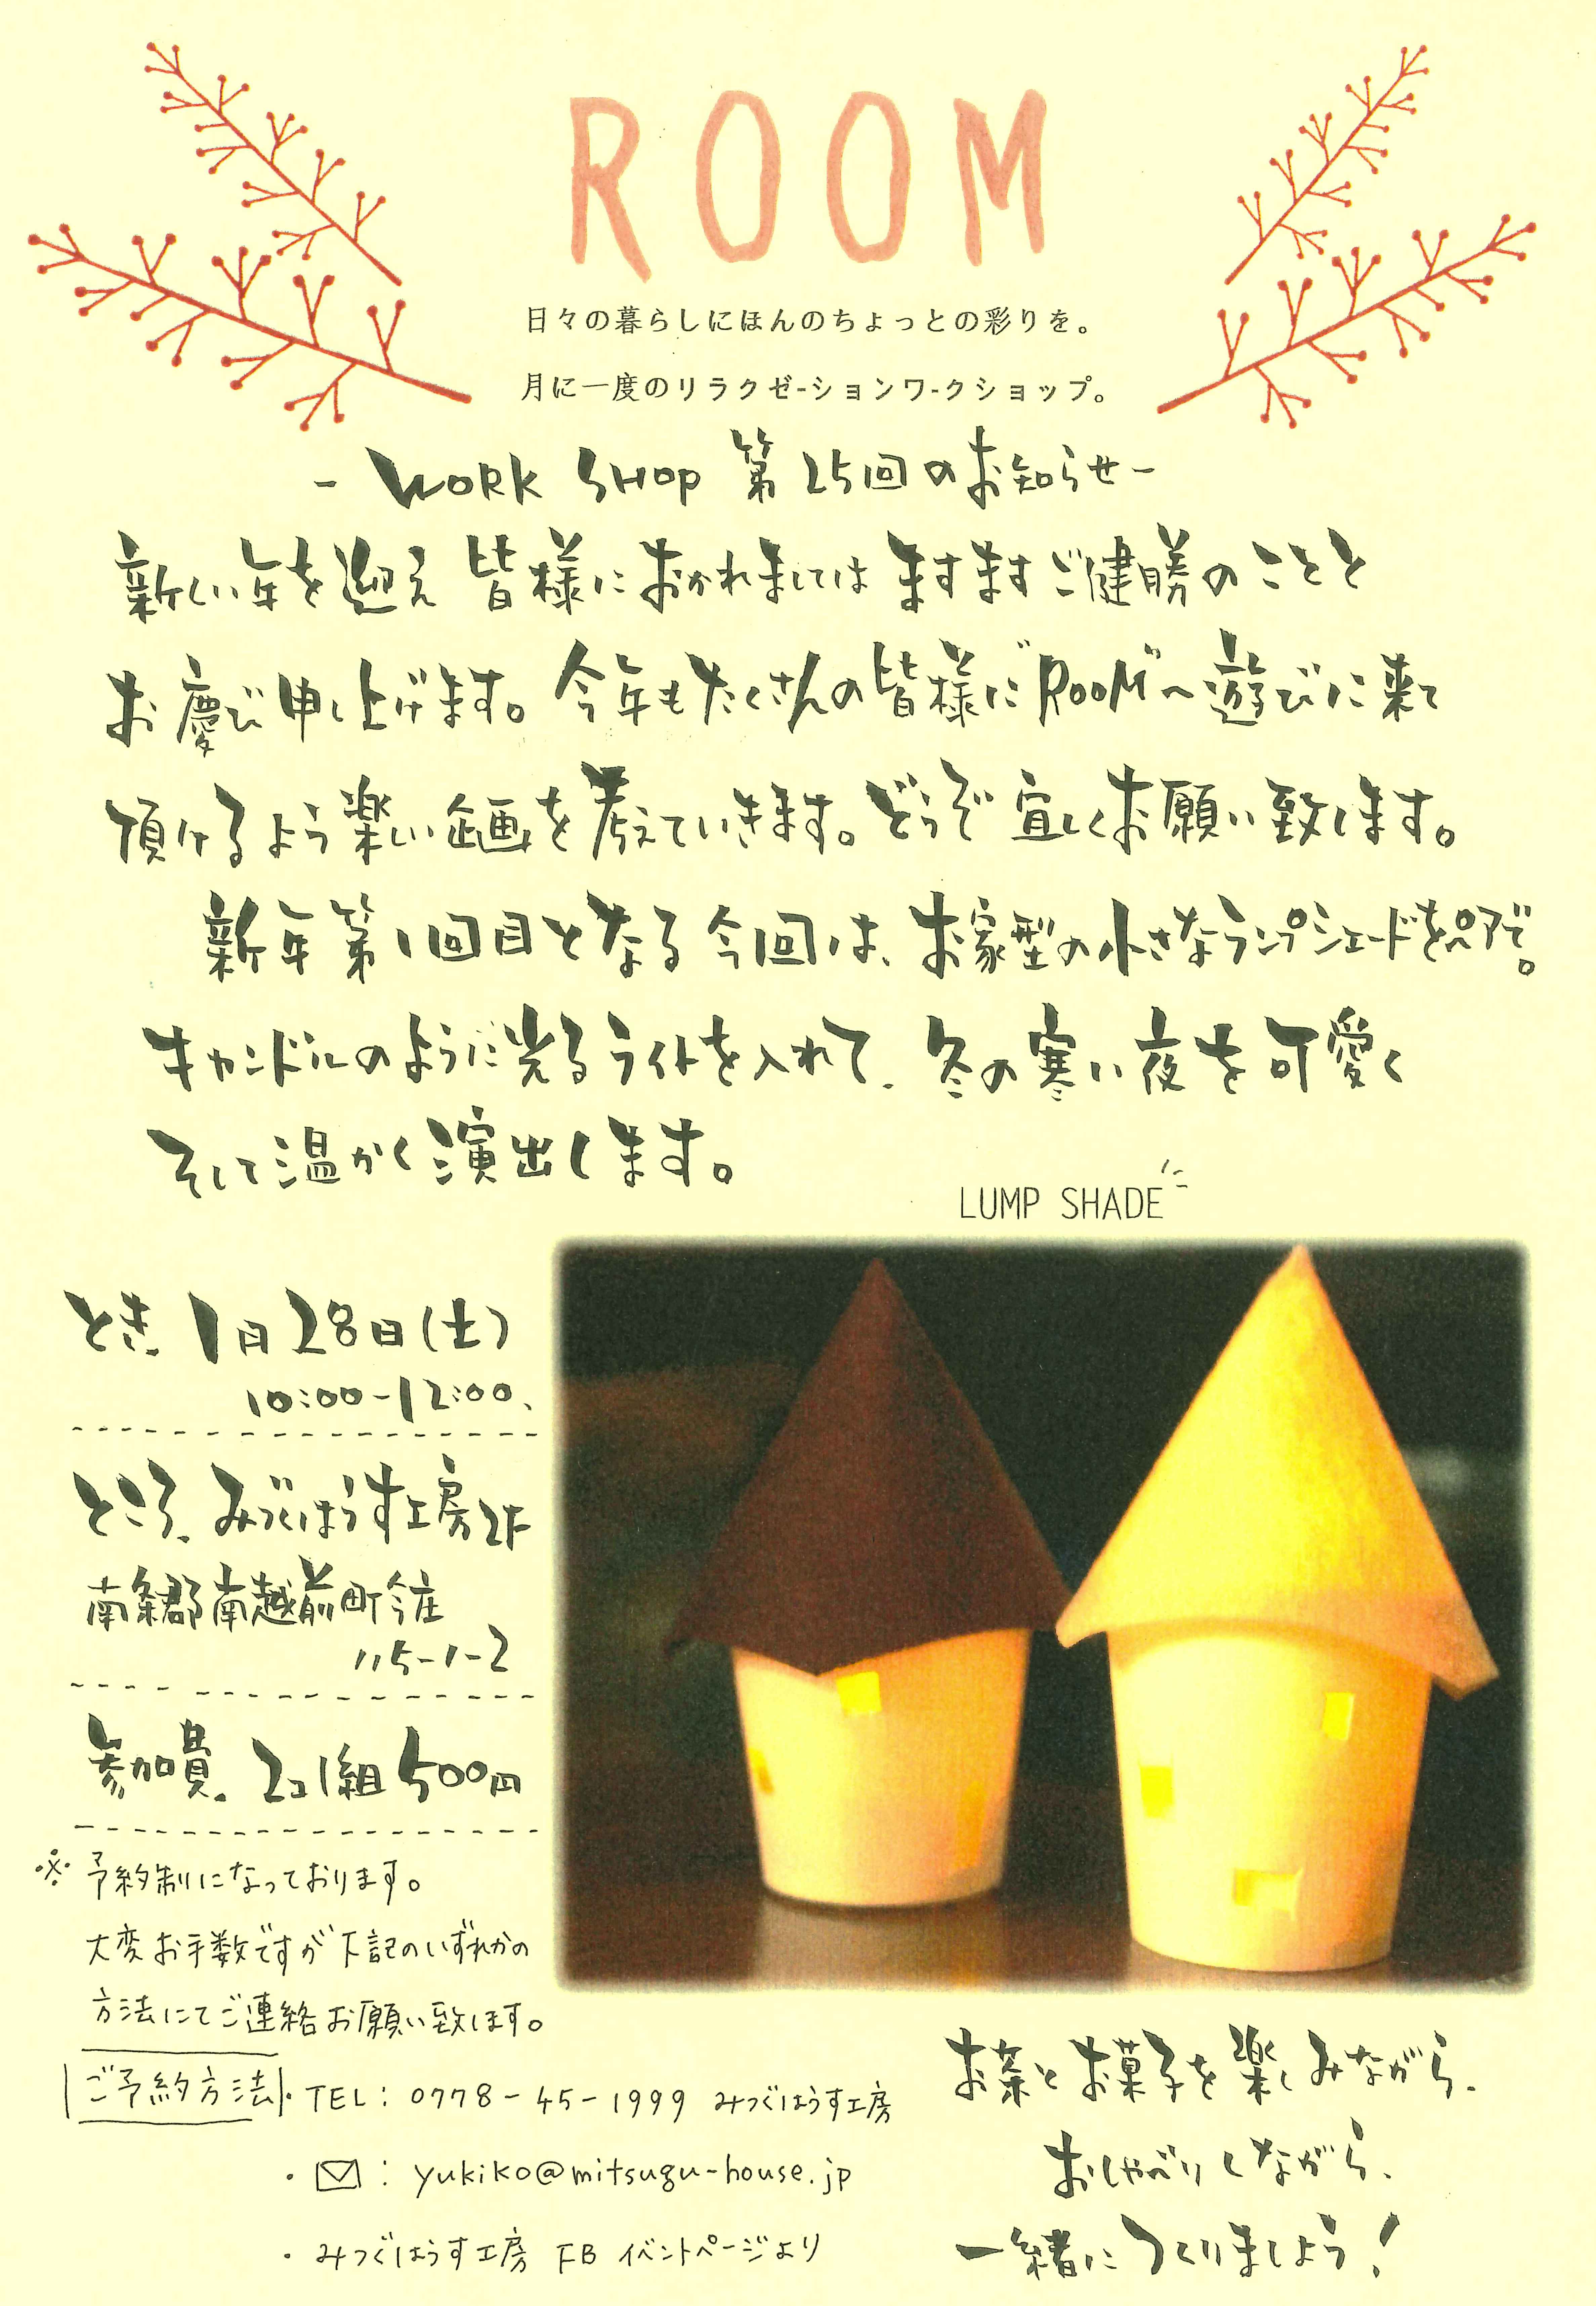 ROOM
日々の暮らしにほんのちょっとの彩りを。
月に一度のリラクゼ-ションワ-クショップ。
- WORK SHOP 第25回のお知らせ -
新しい年を迎え 皆様におかれましては ますます ご健勝のことと
お慶び申し上げます。今年もたくさんの皆様に"ROOM"へ遊びに来て
頂けるよう楽しい企画を考えていきます。どうぞ宜しくお願い致します。
新年第1回目となる今回は、お家型の小さなランプシェードをペアで。
キャンドルのように光るライトを入れて、冬の寒い夜を可愛く
そして温かく演出します。
LUMP SHADE
とき. 1月28日(土)
10:00-12:00.
ところ. みつぐはうす工房2F
南条郡南越前町今庄
115-1-2
参加費. 2コ1組 500円
※ 予約制になっております。
大変お手数ですが下記のいずれかの
方法にてご連絡お願い致します。
ご予約方法 ・TEL: 0778-45-1999 みつぐはうす工房
・ : yukiko@mitsugu-house.jp
・みつぐはうす工房 FB イベントページより
お茶とお菓子を楽しみながら、
おしゃべりしながら、
一緒につくりましょう!